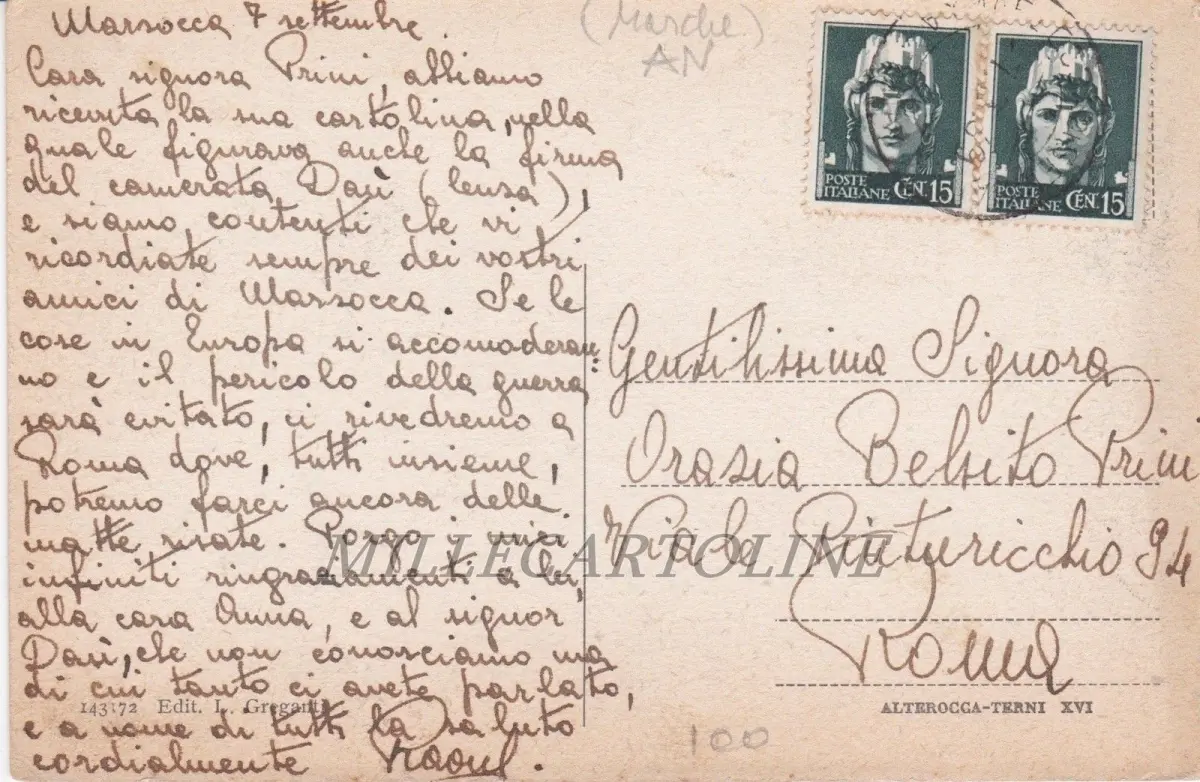 Marzocca 7 settembre.
Cara signora Prini, abbiamo
ricevuta la sua cartolina, nella
quale figurava anche la firma
del camerata Dasì (lensa),
e siamo contenti che vi
ricordiate sempre dei vostri
amici di Marzocca. Se le
cose in Europa si accomoderan-
no e il pericolo della guerra
sarà evitato, ci rivedremo a
Roma dove, tutti insieme,
potremo farci ancora delle
matte risate. Porgo i miei
infiniti ringraziamenti a lei,
alla cara Anna, e al signor
Dasì, che non conosciamo ma
di cui tanto ci avete parlato,
e a nome di tutti la saluto
cordialmente Raoul.
143172 Edit. L. Greganti
(Marche)
AN
POSTE ITALIANE CENT. 15
POSTE ITALIANE CENT. 15
Gentilissima Signora
Orasia Belsito Prini
Viale Pinturicchio 94
Roma
ALTEROCCA-TERNI XVI
100
MYLLECARTOLINE